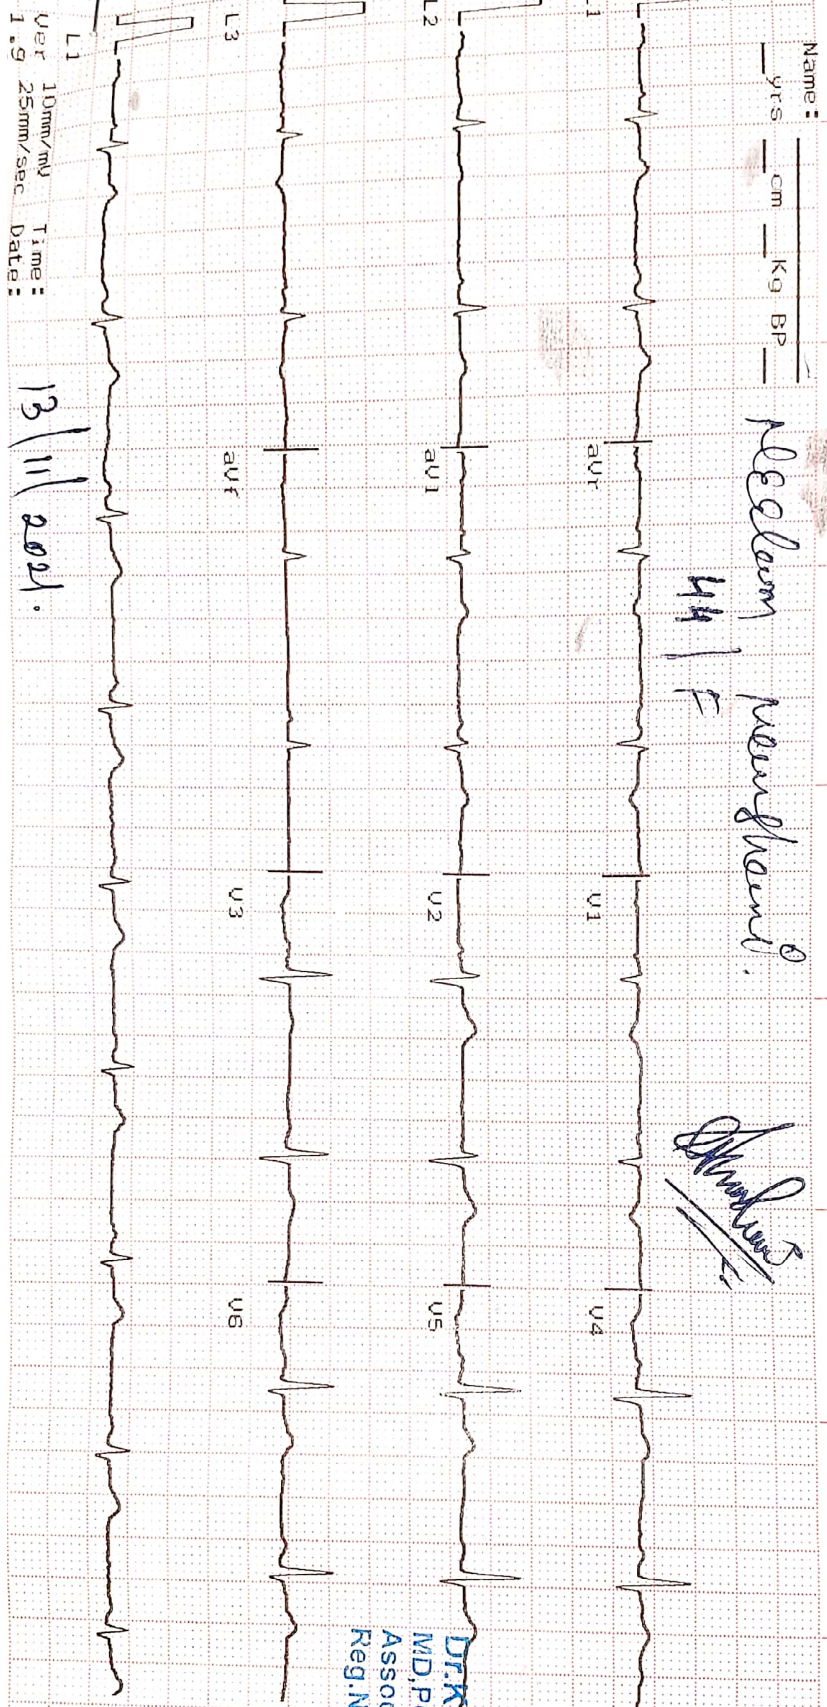 Name:
yrs cm Kg BP
44 / F
L1 aVr V1 V4
L2 aVl V2 V5
L3 aVf V3 V6
L1
Ver 10mm/mV Time:
1.9 25mm/sec Date:
13/11/2021.
Dr.K
MD,P
Assoc
Reg.N